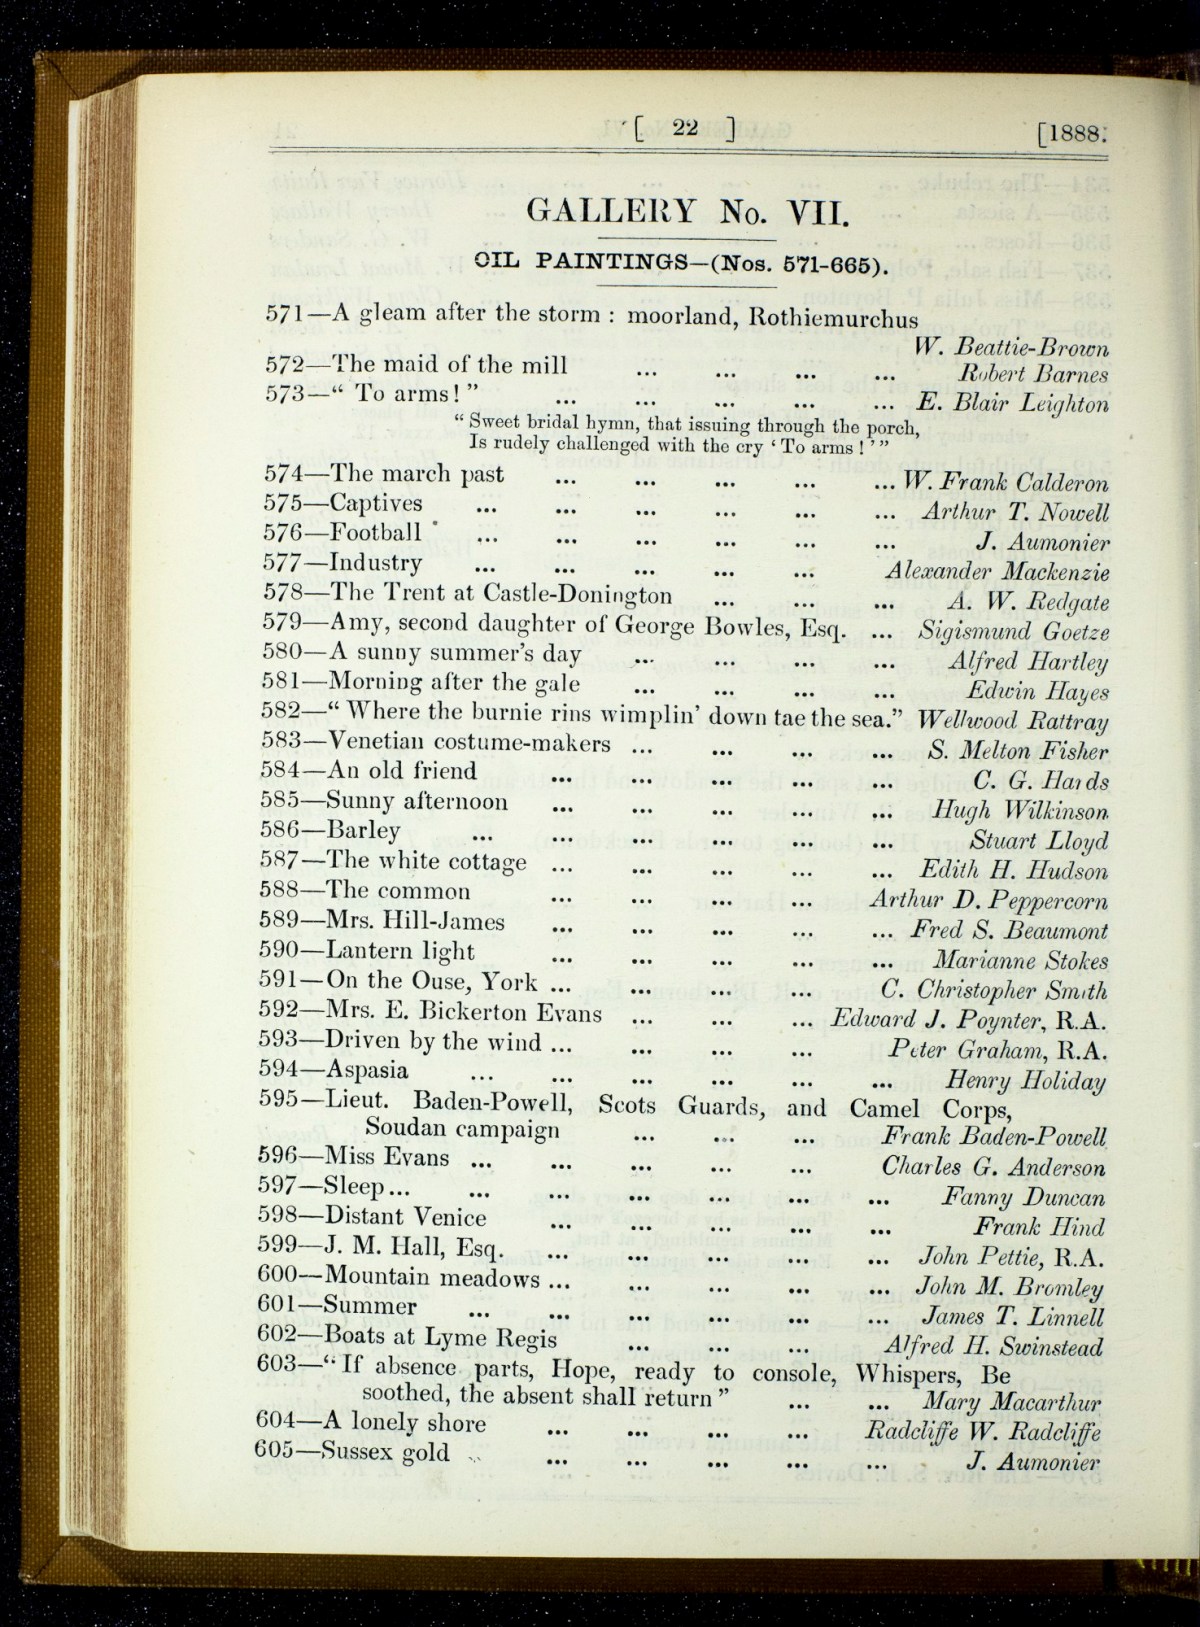 [ 22 ] [1888.
GALLERY No. VII.
OIL PAINTINGS—(Nos. 571-665).
571—A gleam after the storm : moorland, Rothiemurchus
W. Beattie-Brown
572—The maid of the mill ... ... ... ... Robert Barnes
573—“ To arms! ” ... ... ... ... ... E. Blair Leighton
“ Sweet bridal hymn, that issuing through the porch,
Is rudely challenged with the cry ‘ To arms ! ’ ”
574—The march past ... ... ... ... ... W. Frank Calderon
575—Captives ... ... ... ... ... ... Arthur T. Nowell
576—Football ... ... ... ... ... ... J. Aumonier
577—Industry ... ... ... ... ... Alexander Mackenzie
578—The Trent at Castle-Donington ... ... ... A. W. Redgate
579—Amy, second daughter of George Bowles, Esq. ... Sigismund Goetze
580—A sunny summer’s day ... ... ... ... Alfred Hartley
581—Morning after the gale ... ... ... ... Edwin Hayes
582—“ Where the burnie rins wimplin’ down tae the sea.” Wellwood Rattray
583—Venetian costume-makers ... ... ... ... S. Melton Fisher
584—An old friend ... ... ... ... ... C. G. Hards
585—Sunny afternoon ... ... ... ... ... Hugh Wilkinson
586—Barley ... ... ... ... ... ... Stuart Lloyd
587—The white cottage ... ... ... ... ... Edith H. Hudson
588—The common ... ... ... ... Arthur D. Peppercorn
589—Mrs. Hill-James ... ... ... ... ... Fred S. Beaumont
590—Lantern light ... ... ... ... ... Marianne Stokes
591—On the Ouse, York ... ... ... ... C. Christopher Smith
592—Mrs. E. Bickerton Evans ... ... ... Edward J. Poynter, R.A.
593—Driven by the wind ... ... ... ... Peter Graham, R.A.
594—Aspasia ... ... ... ... ... ... Henry Holiday
595—Lieut. Baden-Powell, Scots Guards, and Camel Corps,
Soudan campaign ... ... ... Frank Baden-Powell
596—Miss Evans ... ... ... ... ... Charles G. Anderson
597—Sleep... ... ... ... ... ... ... Fanny Duncan
598—Distant Venice ... ... ... ... ... Frank Hind
599—J. M. Hall, Esq. ... ... ... ... ... John Pettie, R.A.
600—Mountain meadows ... ... ... ... ... John M. Bromley
601—Summer ... ... ... ... ... ... James T. Linnell
602—Boats at Lyme Regis ... ... ... Alfred H. Swinstead
603—“ If absence parts, Hope, ready to console, Whispers, Be
soothed, the absent shall return ” ... ... Mary Macarthur
604—A lonely shore ... ... ... ... Radcliffe W. Radcliffe
605—Sussex gold ... ... ... ... ... ... J. Aumonier